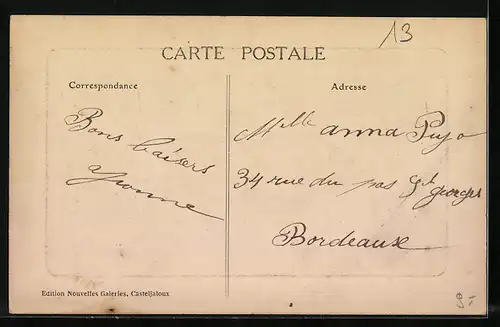 13
CARTE POSTALE
Correspondance
Adresse
Bons baisers
Yvonne
Mlle anna Pujo
34 rue du pas St georges
Bordeaux
Edition Nouvelles Galeries, Casteljaloux